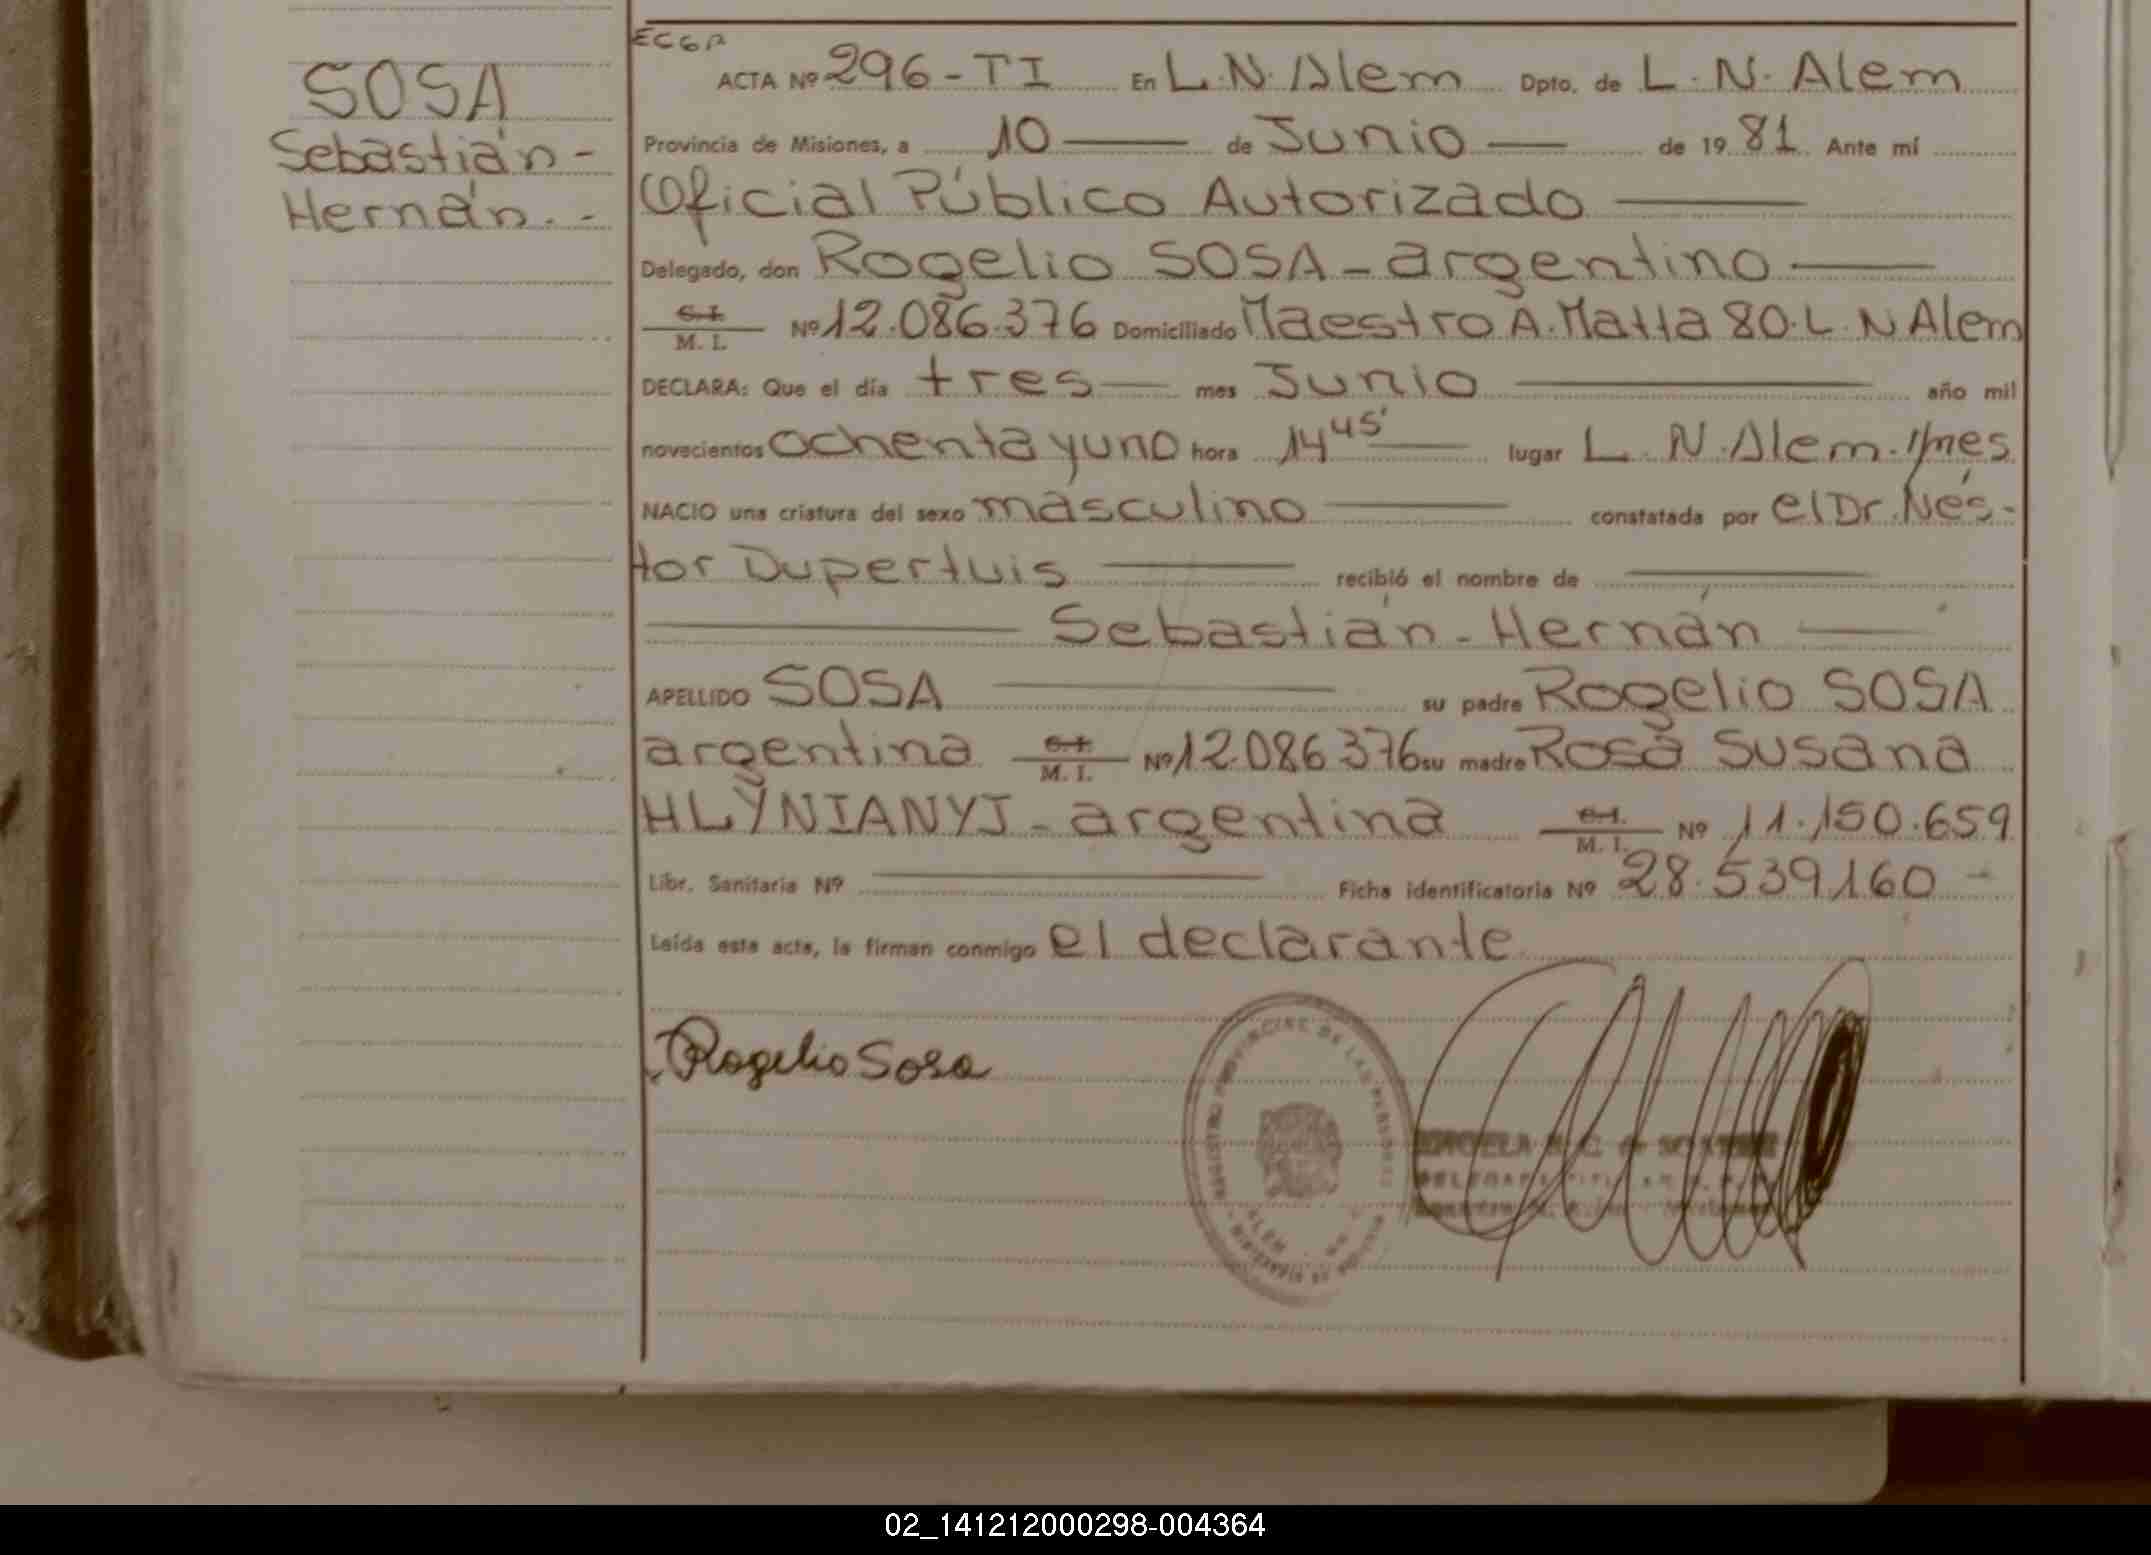 SOSA
Sebastián -
Hernán. -
ECGA
ACTA Nº 296-TI En L.N. Alem Dpto. de L. N. Alem
Provincia de Misiones, a 10 de Junio de 19 81 Ante mí
Oficial Público Autorizado
Delegado, don Rogelio SOSA - argentino
C.I. / M. I. Nº 12.086.376 Domiciliado Maestro A. Matta 80. L. N Alem
DECLARA: Que el día tres mes Junio año mil
novecientos ochenta y uno hora 14 45' lugar L. N. Alem.
NACIO una criatura del sexo masculino constatada por el Dr. Nés-
tor Dupertuis recibió el nombre de
Sebastián - Hernán
APELLIDO SOSA su padre Rogelio SOSA
argentina C.I. / M. I. Nº 12.086 376 su madre Rosa Susana
HLYNIANYJ - argentina C.I. / M. I. Nº 11.150.659
Libr. Sanitaria Nº Ficha identificatoria Nº 28.539.160 -
Leída esta acta, la firman conmigo el declarante
Rogelio Sosa
02_141212000298-004364